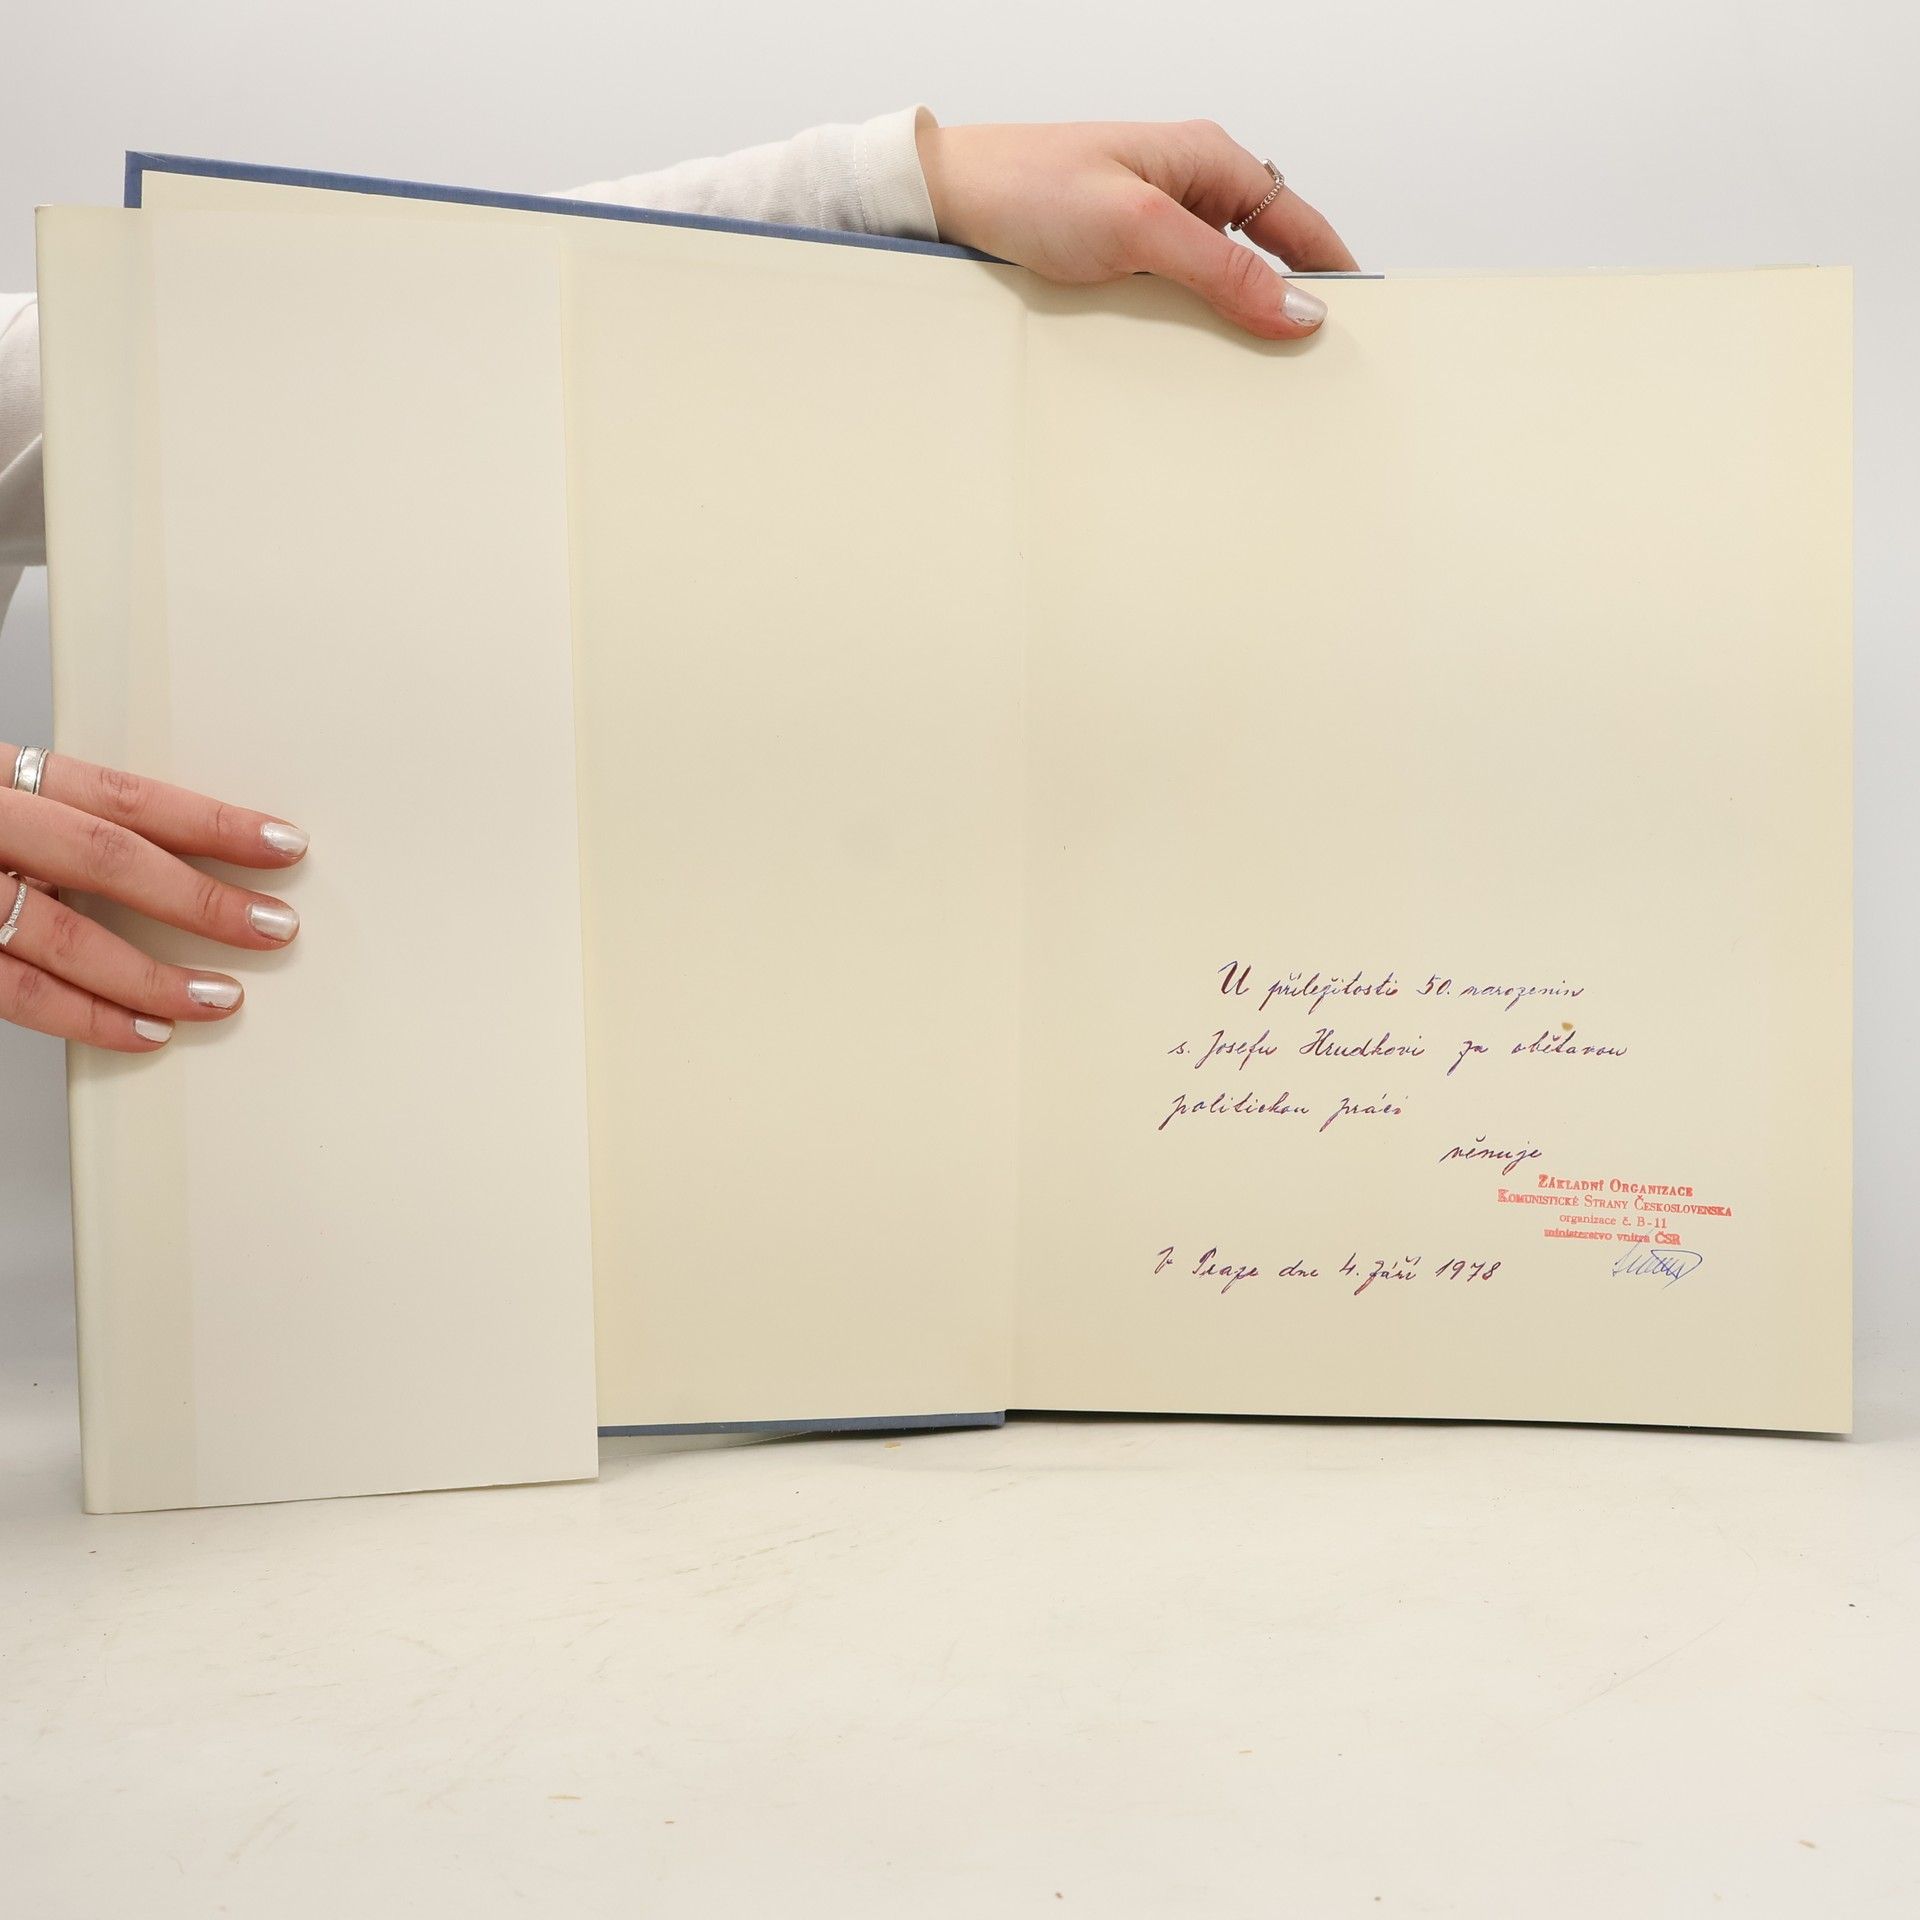 U příležitosti 50. narozenin
s. Josefu Hrudkovi za obětavou
politickou práci
věnuje
ZÁKLADNÍ ORGANIZACE
KOMUNISTICKÉ STRANY ČESKOSLOVENSKA
organizace č. B-11
ministerstvo vnitra ČSR
V Praze dne 4. září 1978